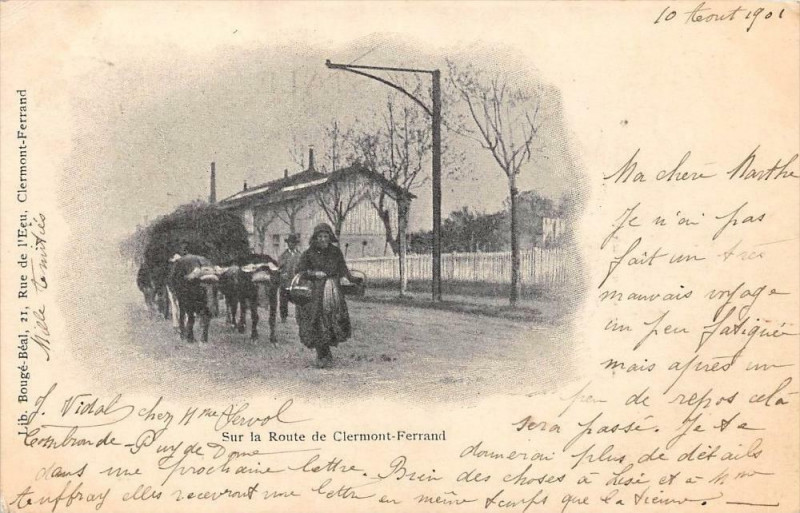 10 Aout 1901
Ma chère Marthe
Je n'ai pas
fait un très
mauvais voyage
un peu fatiguée
mais après un
peu de repos celà
sera passé. Je te
donnerai plus de détails
dans une prochaine lettre. Bien des choses à
et à Mme
elles recevront une lettre en même temps que la tienne.
J. Vidal chez Mme
Combronde Puy de Dome
Mille amitiés
Sur la Route de Clermont-Ferrand
Lib. Bougé-Béal, 21, Rue de l'Eeu, Clermont-Ferrand